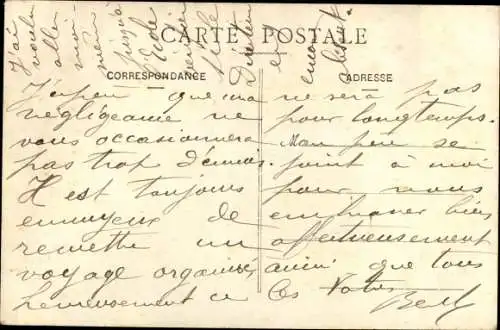 J'ai
voulu
aller
moi
même
jusqu'à
l'Ecole
remercier
le
Directeur
et
CARTE POSTALE
CORRESPONDANCE
ADRESSE
J'espère que ma
négligeance ne
vous occasionnera
pas trop d'ennuis.
Il est toujours
ennuyeux de
remettre un
voyage organisé,
heureusement ce
ne sera pas
pour longtemps.
Mon père se
joint à moi
pour vous
embrasser bien
affectueusement
ainsi que tous
les Vôtres